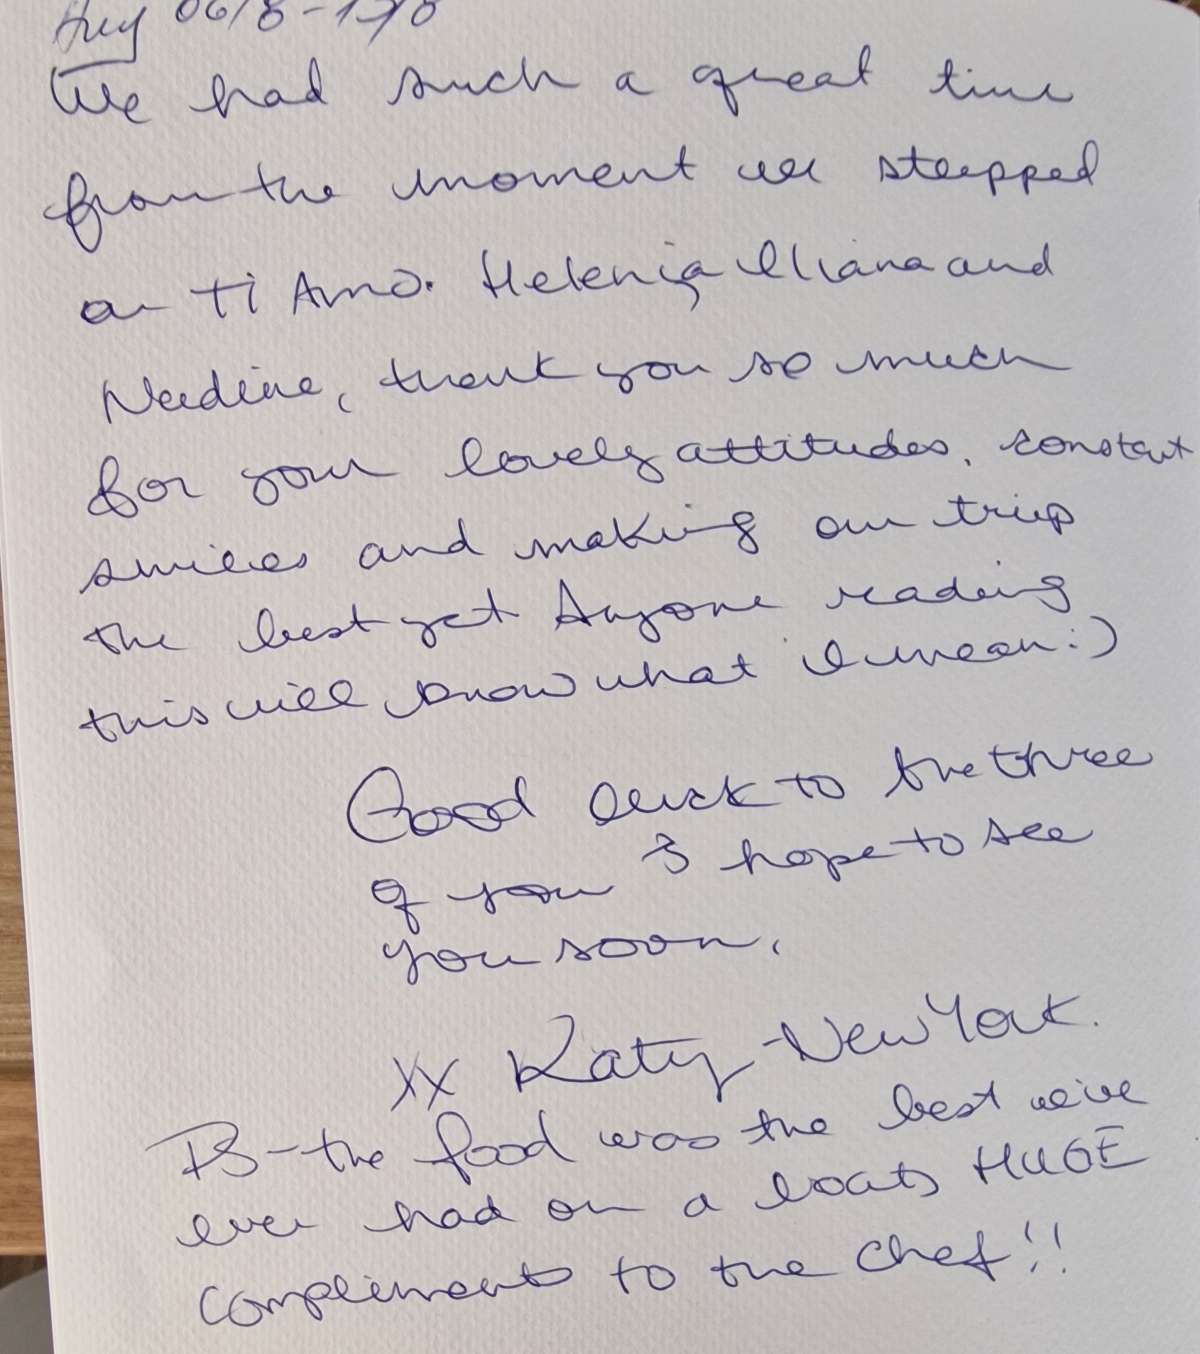 Aug 06/8 -
We had such a great time
from the moment we stepped
on Ti Amo. Helenia Iliana and
Nadine, thank you so much
for your lovely attitudes, constant
smiles and making our trip
the best yet Anyone reading
this will know what I mean :)
Good luck to the three
of you & hope to see
you soon.
xx Katy - New York.
PS - the food was the best we've
ever had on a boat, HUGE
compliments to the chef!!